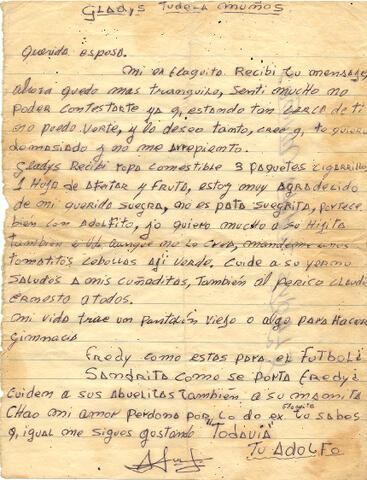 GLADYS TUDELA MUÑOS
Querida esposa.
Mi ex flaquita. Recibi tu mensage
ahora quedo mas tranquilo, senti mucho no
poder contestarte ya q, estando tan cerca de ti
no puedo verte, y lo deseo tanto, cree q, te quiero
demasiado y no me arrepiento.
Gladys Recibi ropa comestible 3 paquetes cigarrillo
1 Hoja de afeitar y fruta, estoy muy agradecido
de mi querida suegra, no es pata suegrita, portece
bien con Adolfito, yo quiero mucho a su Hijita
tambien a Ud. aunque no lo crea, mandeme unos
tomatitos cebollas aji verde. Cuide a su yerno
saludos a mis cuñaditas, tambien al perico Claudi
Ernesto a todos.
mi vida trae un pantalón viejo o algo para Hacer
gimnacia
Fredy como estas para el Futbol?
Sandrita como se porta Fredy?
Cuiden a sus abuelitas tambien a su mamita
Chao mi amor perdona por lo de ex. tu sabes
q, igual me sigues gustando "Todavia"
Tu ADOLFO